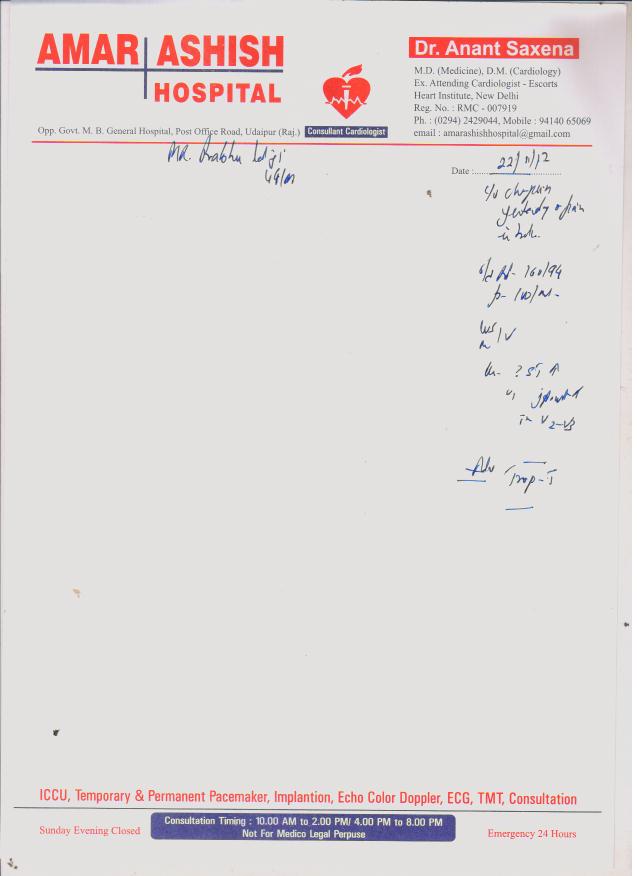 AMAR ASHISH
HOSPITAL
Opp. Govt. M. B. General Hospital, Post Office Road, Udaipur (Raj.)
Consullant Cardiologist
Dr. Anant Saxena
M.D. (Medicine), D.M. (Cardiology)
Ex. Attending Cardiologist - Escorts
Heart Institute, New Delhi
Reg. No. : RMC - 007919
Ph. : (0294) 2429044, Mobile : 94140 65069
email : amarashishhospital@gmail.com
MR. Prabhu
Date : 22/11/12
yesterday
in
160/94
? ST
in V2-V3
Adv Trop-T
ICCU, Temporary & Permanent Pacemaker, Implantion, Echo Color Doppler, ECG, TMT, Consultation
Sunday Evening Closed
Consultation Timing : 10.00 AM to 2.00 PM/ 4.00 PM to 8.00 PM
Not For Medico Legal Perpuse
Emergency 24 Hours